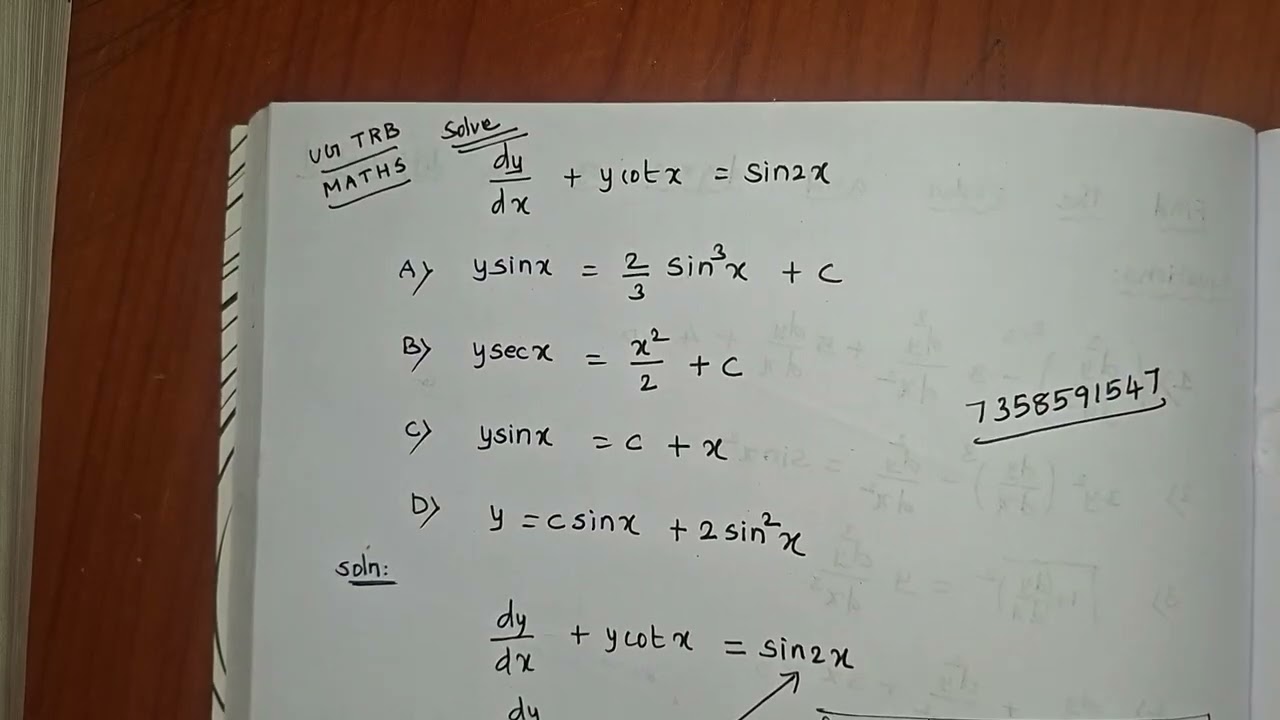 UG TRB
MATHS
Solve
dy/dx + y cot x = sin2x
A) y sin x = 2/3 sin³x + c
B) y sec x = x²/2 + c
C) y sin x = c + x
D) y = c sin x + 2 sin²x
7358591547
Soln:
dy/dx + y cot x = sin2x
dy